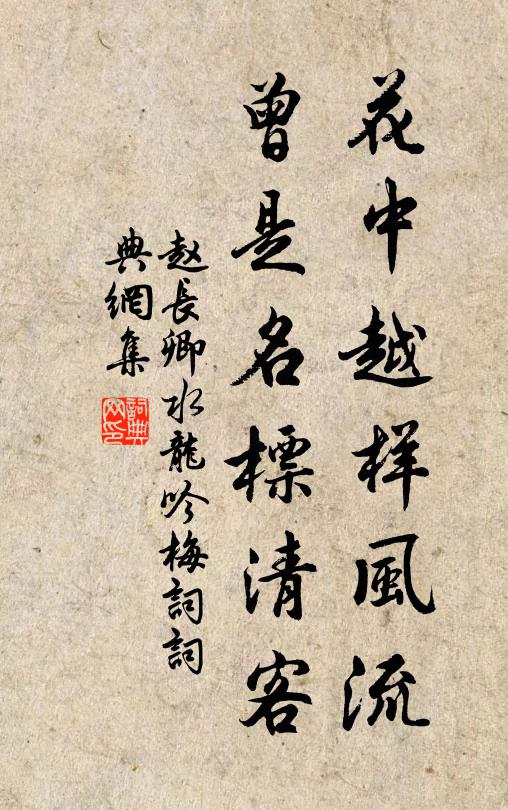 花中越样風流
曾是名標清客
赵長卿水龍吟梅詞詞
典網集
詞典网印